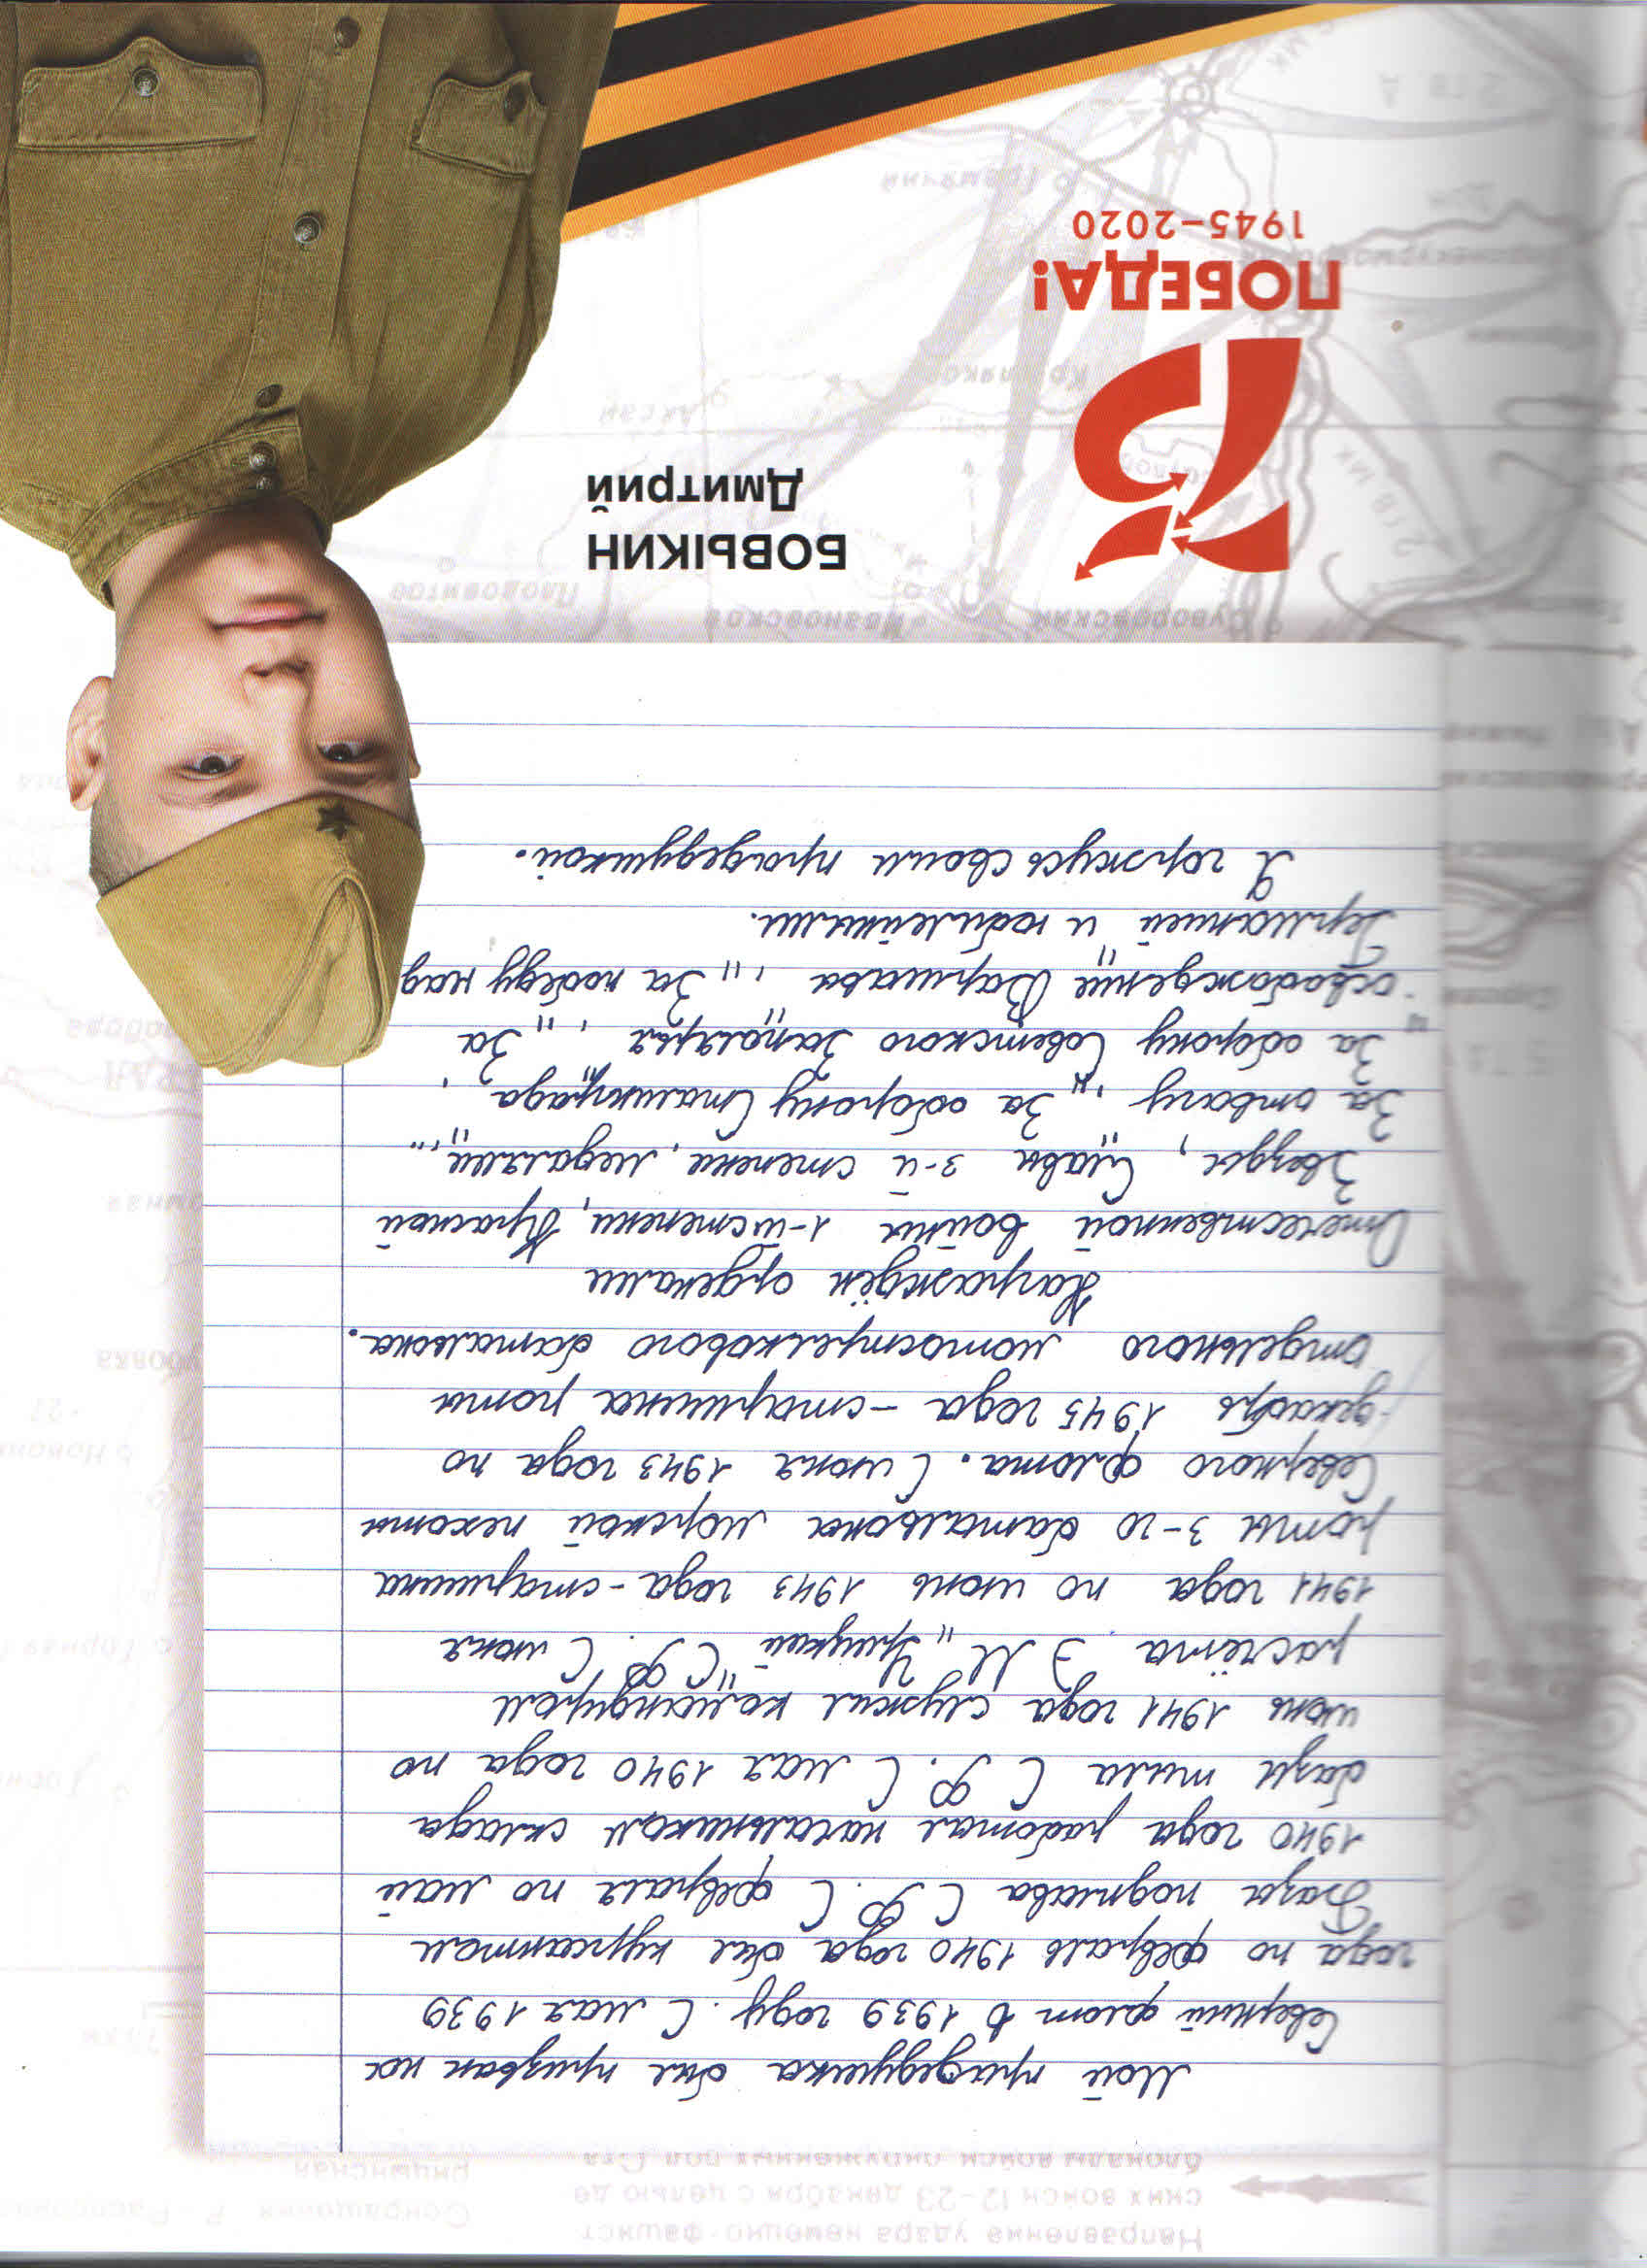 Направление удара немецко-фашист
ских войск 12-23 декабря с целью де
блокады войск, окруженных под Ста
Сокращения: Р - Распопин
рицынская
Мой прадедушка был призван на
Северный флот в 1939 году. С мая 1939
года по февраль 1940 года был курсантом
Базы подплава СФ. С февраля по май
1940 года работал начальником склада
базы тыла СФ. С мая 1940 года по
июнь 1941 года служил командиром
расчёта ЭМ „Урицкий" СФ. С июня
1941 года по июнь 1943 года - старшина
роты 3-го батальона морской пехоты
Северного флота. С июня 1943 года по
декабрь 1945 года - старшина роты
отдельного мотострелкового батальона.
Награждён орденами
Отечественной войны 1-й степени, Красной
Звезды, Славы 3-й степени, медалями „
За отвагу", „За оборону Сталинграда",
„За оборону Советского Заполярья", „За
освобождение Варшавы", „За победу над
Германией" и юбилейными.
Я горжусь своим прадедушкой.
Суворовский
Ивановской
Плодовитое
75
БОВЫКИН
Дмитрий
2 ГВ. МК
Аксай
ПОБЕДА!
1945–2020
Громячий
2 гв. А